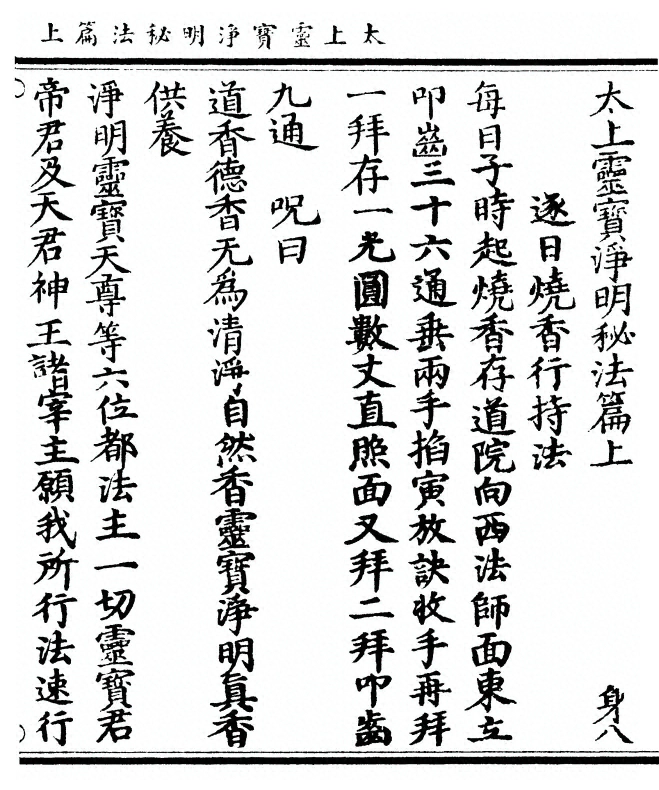 太上靈寳淨明秘法篇上
太上靈寳淨明秘法篇上 身八
逐日燒香行持法
每日子時起燒香存道院向西法師面東立
叩齒三十六通垂兩手掐寅放訣收手再拜
一拜存一光圓數丈直照面又拜二拜叩齒
九通 呪曰
道香德香无為清淨自然香靈寳淨明真香
供養
淨明靈寳天尊等六位都法主一切靈寳君
帝君及天君神王諸宰主願我所行法速行